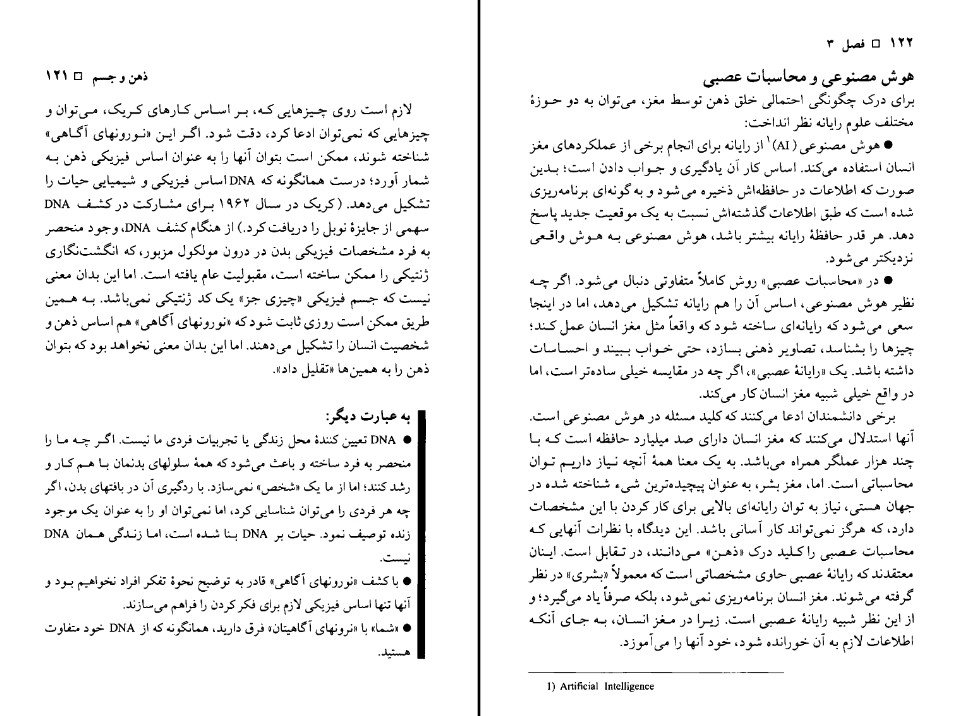 ذهن و جسم □ ۱۲۱
لازم است روی چیزهایی که، بر اساس کارهای کریک، می‌توان و
چیزهایی که نمی‌توان ادعا کرد، دقت شود. اگر این «نورونهای آگاهی»
شناخته شوند، ممکن است بتوان آنها را به عنوان اساس فیزیکی ذهن به
شمار آورد؛ درست همانگونه که DNA اساس فیزیکی و شیمیایی حیات را
تشکیل می‌دهد. (کریک در سال ۱۹۶۲ برای مشارکت در کشف DNA
سهمی از جایزهٔ نوبل را دریافت کرد.) از هنگام کشف DNA، وجود منحصر
به فرد مشخصات فیزیکی بدن در درون مولکول مزبور، که انگشت‌نگاری
ژنتیکی را ممکن ساخته است، مقبولیت عام یافته است. اما این بدان معنی
نیست که جسم فیزیکی «چیزی جز» یک کد ژنتیکی نمی‌باشد. به همین
طریق ممکن است روزی ثابت شود که «نورونهای آگاهی» هم اساس ذهن و
شخصیت انسان را تشکیل می‌دهند. اما این بدان معنی نخواهد بود که بتوان
ذهن را به همین‌ها «تقلیل داد».
به عبارت دیگر:
● DNA تعیین کنندهٔ محل زندگی یا تجربیات فردی ما نیست. اگر چه ما را
منحصر به فرد ساخته و باعث می‌شود که همهٔ سلولهای بدنمان با هم کار و
رشد کنند؛ اما از ما یک «شخص» نمی‌سازد. با ردگیری آن در بافتهای بدن، اگر
چه هر فردی را می‌توان شناسایی کرد، اما نمی‌توان او را به عنوان یک موجود
زنده توصیف نمود. حیات بر DNA بنا شده است، اما زندگی همان DNA
نیست.
● با کشف «نورونهای آگاهی» قادر به توضیح نحوهٔ تفکر افراد نخواهیم بود و
آنها تنها اساس فیزیکی لازم برای فکر کردن را فراهم می‌سازند.
● «شما» با «نرونهای آگاهیتان» فرق دارید، همانگونه که از DNA خود متفاوت
هستید.
۱۲۲ □ فصل ۳
هوش مصنوعی و محاسبات عصبی
برای درک چگونگی احتمالی خلق ذهن توسط مغز، می‌توان به دو حوزهٔ
مختلف علوم رایانه نظر انداخت:
● هوش مصنوعی (AI)۱ از رایانه برای انجام برخی از عملکردهای مغز
انسان استفاده می‌کند. اساس کار آن یادگیری و جواب دادن است؛ بدین
صورت که اطلاعات در حافظه‌اش ذخیره می‌شود و به گونه‌ای برنامه‌ریزی
شده است که طبق اطلاعات گذشته‌اش نسبت به یک موقعیت جدید پاسخ
دهد. هر قدر حافظهٔ رایانه بیشتر باشد، هوش مصنوعی به هوش واقعی
نزدیکتر می‌شود.
● در «محاسبات عصبی» روش کاملاً متفاوتی دنبال می‌شود. اگر چه
نظیر هوش مصنوعی، اساس آن را هم رایانه تشکیل می‌دهد، اما در اینجا
سعی می‌شود که رایانه‌ای ساخته شود که واقعاً مثل مغز انسان عمل کند؛
چیزها را بشناسد، تصاویر ذهنی بسازد، حتی خواب ببیند و احساسات
داشته باشد. یک «رایانهٔ عصبی»، اگر چه در مقایسه خیلی ساده‌تر است، اما
در واقع خیلی شبیه مغز انسان کار می‌کند.
برخی دانشمندان ادعا می‌کنند که کلید مسئله در هوش مصنوعی است.
آنها استدلال می‌کنند که مغز انسان دارای صد میلیارد حافظه است که با
چند هزار عملگر همراه می‌باشد. به یک معنا همهٔ آنچه نیاز داریم توان
محاسباتی است. اما، مغز بشر، به عنوان پیچیده‌ترین شیء شناخته شده در
جهان هستی، نیاز به توان رایانه‌ای بالایی برای کار کردن با این مشخصات
دارد، که هرگز نمی‌تواند کار آسانی باشد. این دیدگاه با نظرات آنهایی که
محاسبات عصبی را کلید درک «ذهن» می‌دانند، در تقابل است. اینان
معتقدند که رایانهٔ عصبی حاوی مشخصاتی است که معمولاً «بشری» در نظر
گرفته می‌شوند. مغز انسان برنامه‌ریزی نمی‌شود، بلکه صرفاً یاد می‌گیرد؛ و
از این نظر شبیه رایانهٔ عصبی است. زیرا در مغز انسان، به جای آنکه
اطلاعات لازم به آن خورانده شود، خود آنها را می‌آموزد.
1) Artificial Intelligence